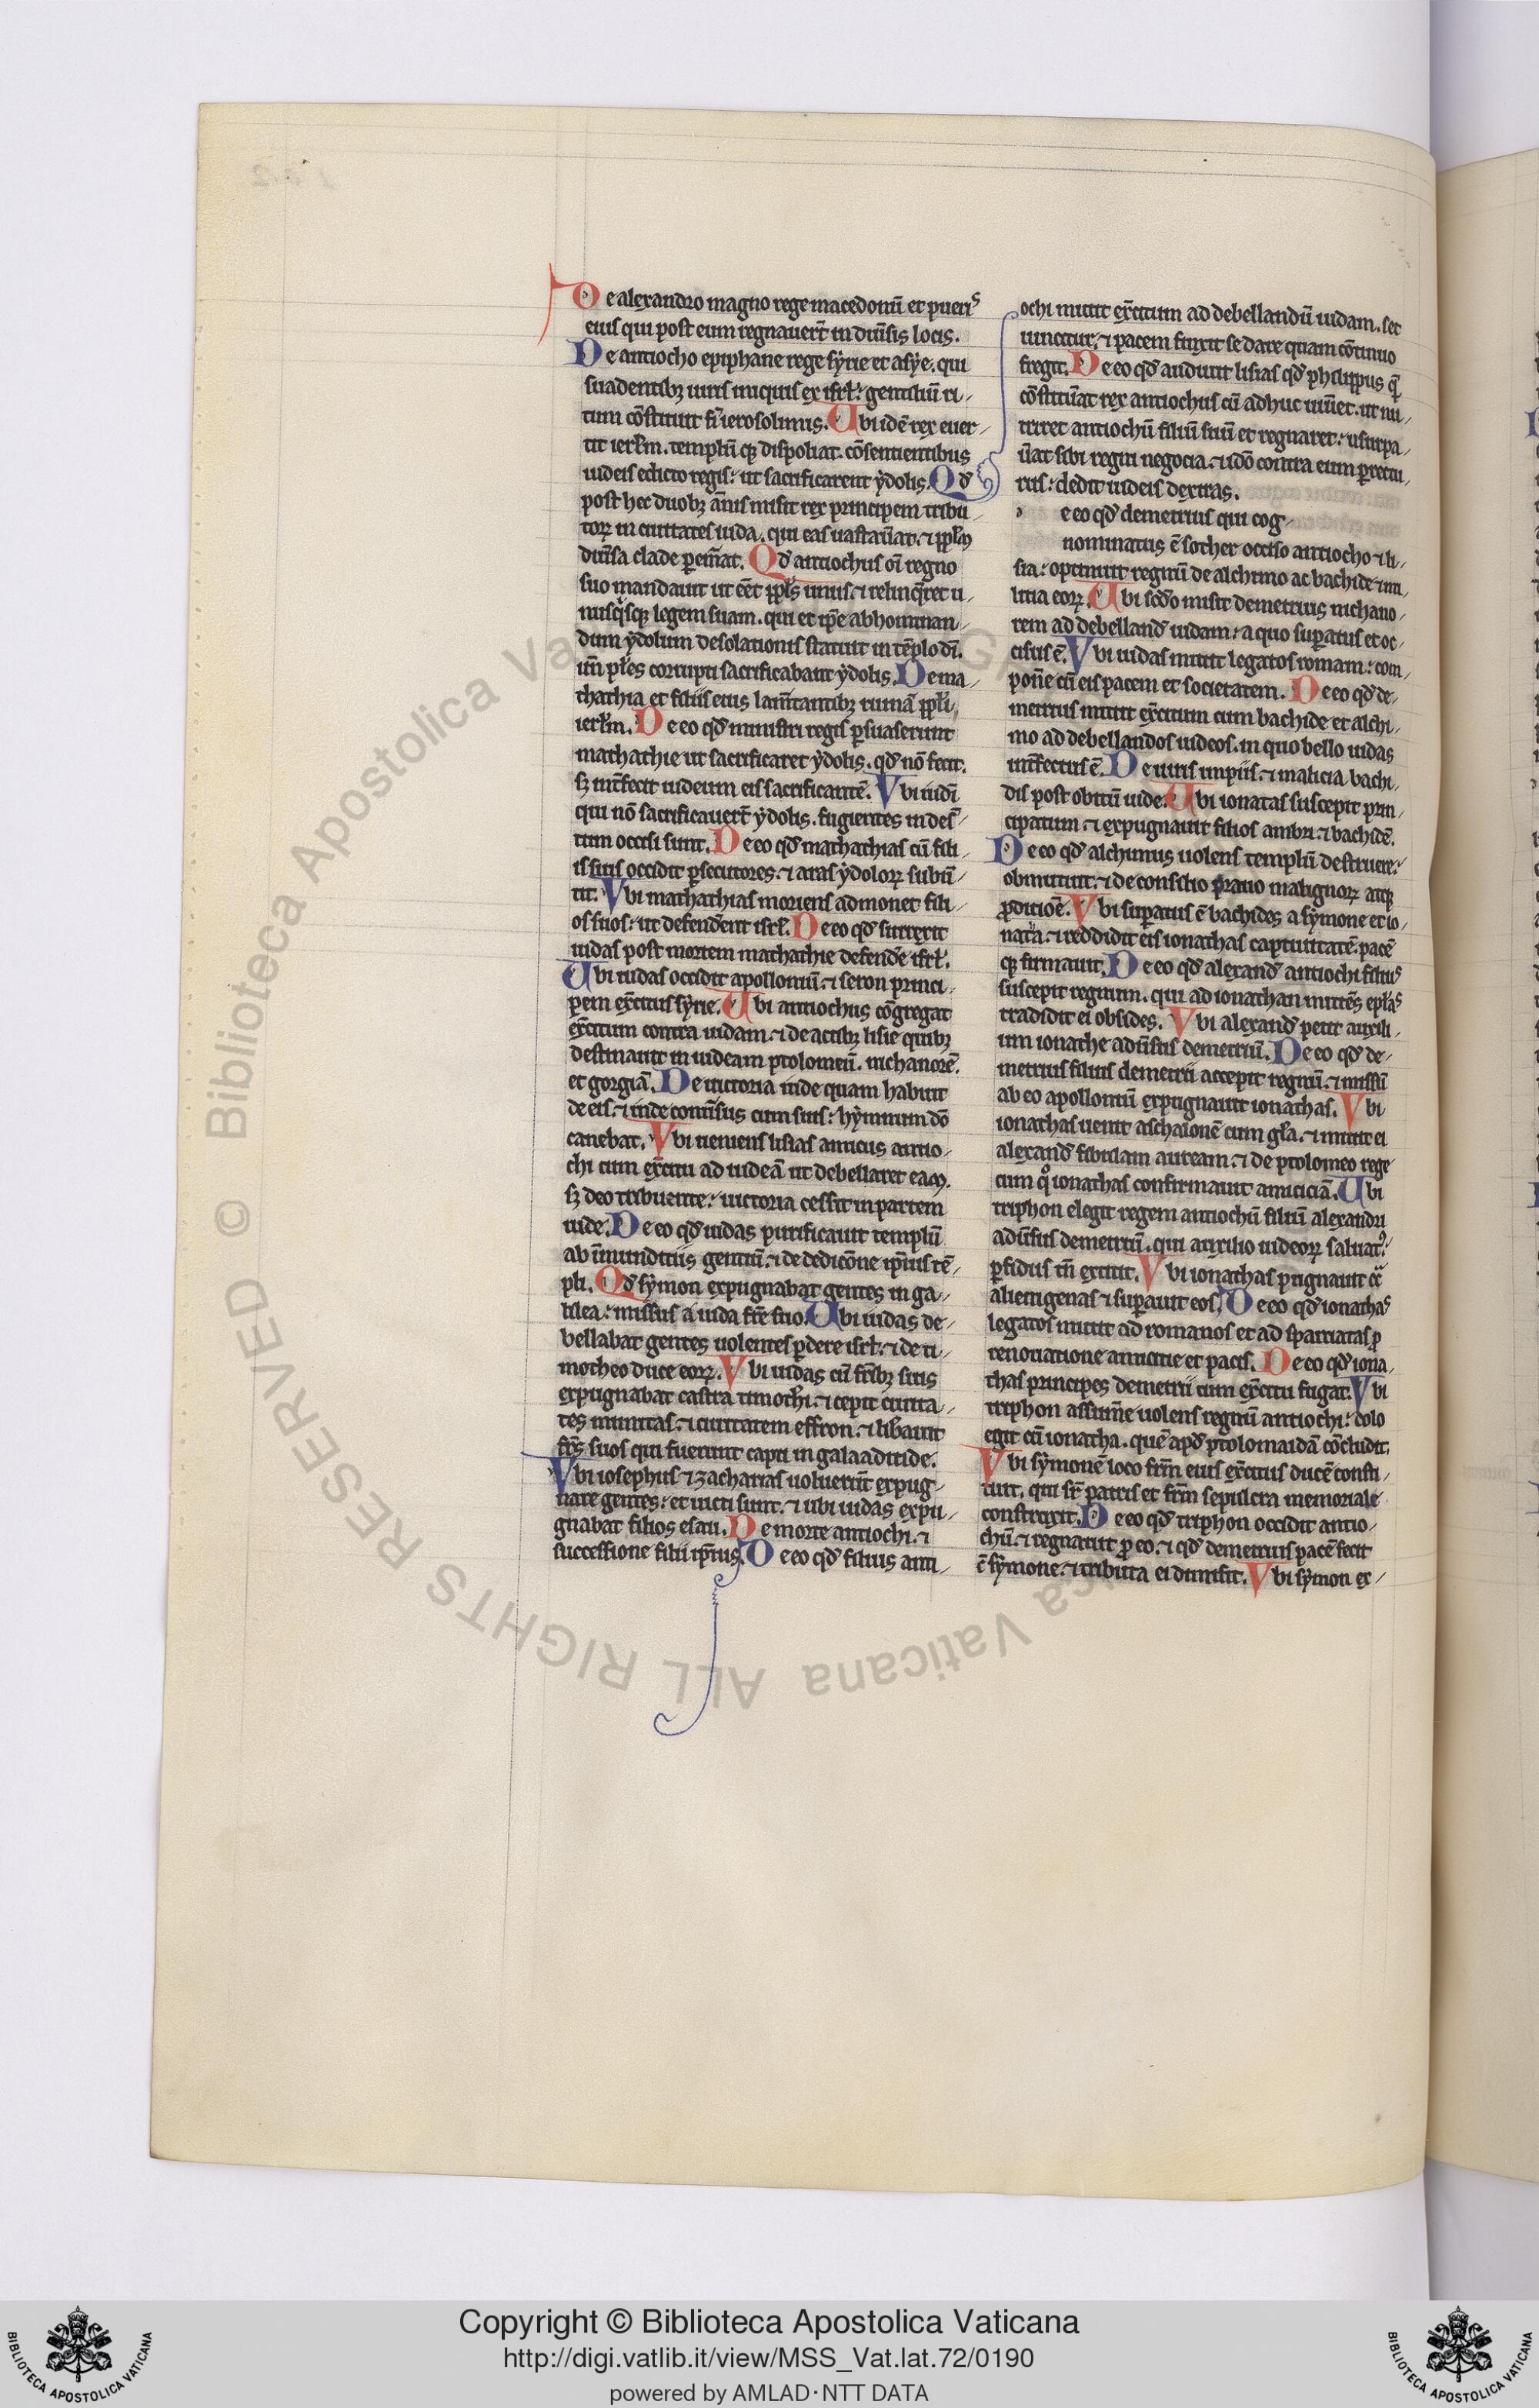 De alexandro magno rege macedonũ et pueris
eius qui post eum regnauerũt in diũsis locis.
De antiocho epiphane rege syrie et asye. qui
suadentibꝫ uiris iniquis ex isrl̃: gentiliũ ri-
tum cõstituit fi̾ ierosolimis. Vbi idẽ rex euer-
tit ierl̃m. templũ qꝫ dispoliat. cõsentientibus
iudeis edicto regis: ut sacrificarent ydolis. Qđ
post hec duobꝫ ãnis misit rex principem tribu-
torꝝ in ciuitates iuda. qui eas uastaũat. ⁊ ppl̃m
diũsa clade pem̃at. Qđ antiochus oĩ regno
suo mandauit ut eẽt ppl̃s unus. ⁊ relinq̃ret u-
nusq̃sqꝫ legem suam. qui et ip̃e abhominan-
dum ydolum desolationis statuit in tẽplo dĩ.
un̄ pl̃es corrupti sacrificabant ydolis. De ma-
thathia et filiis eius lam̃tantibꝫ ruinã ppl̃i
ierl̃m. De eo qđ ministri regis ꝑsuaserunt
mathathie ut sacrificaret ydolis. qđ nõ fecit.
sꝫ int̃fecit iudeum eis sacrificantẽ. Vbi iudĩ
qui nõ sacrificauerũt ydolis. fugientes in des̾-
tum occisi sunt. De eo qđ mathathias cũ fili-
is suis occidit ꝑsecutores. ⁊ aras ydolorꝝ subũ-
tit. Vbi mathathias moriens admonet fili-
os suos: ut defendẽrent isrl̃. De eo qđ surrexit
iudas post mortem mathathie defendẽ isrl̃.
Vbi iudas occidit apolloniũ. ⁊ seron princi-
pem ex̃citus syrie. Vbi antiochus cõgregat
ex̃citum contra iudam. ⁊ de actibꝫ lisie quibꝫ
destinauit in iudeam ptolomeũ. nichanorẽ.
et gorgiã. De uictoria inde quam habuit
de eis. ⁊ inde conũsus cum suis: hymnum dõ
canebat. Vbi ueniens lisias amicus antio-
chi cum ex̃citu ad iudeã ut debellaret eam.
sꝫ deo tribuente: uictoria cessit in partem
iude. De eo qđ iudas purificauit templũ
ab ĩmunditiis gentiũ. ⁊ de dedicõne ip̃ius tẽ-
pli. Qđ symon expugnabat gentes in ga-
lilea: missus a iuda frẽ suo. Vbi iudas de-
bellabat gentes uolentes ꝑdere isrl̃: ⁊ de ti-
motheo duce eorꝝ. Vbi iudas cũ frĩbꝫ suis
expugnabat castra timothi̾. ⁊ cepit ciuita-
tes munitas. ⁊ ciuitatem effron. ⁊ libauit
frẽs suos qui fuerunt capti in galaaditide.
Vbi iosephus ⁊ zacharias uoluerũt expug-
nare gentes: et uicti sunt. ⁊ ubi iudas expu-
gnabat filios esau. De morte antiochi. ⁊
successione filii ip̃ius. De eo qđ filius anti-
ochi mittit ex̃citum ad debellandũ iudam. set
iungitur. ⁊ pacem finxit se dare quam cõtinuo
fregit. De eo qđ audiuit lisias qđ philippus q̃
cõstituãt rex antiochus cũ adhuc uiũet. ut nu-
triret antiochũ filiũ suũ et regnaret: usurpa-
ũat sibi regni negocia. ⁊ idõ contra eum ꝑrectu-
rus: dedit iudeis dextras.
eeo qđ demetrius qui cog-
nominatus ẽ sother occiso antiocho ⁊ li-
sia: optinuit regnũ de alchimo ac bachide ⁊ mi-
litia eorꝝ. Vbi scđo misit demetrius nichano-
rem ad debellanđ iudam: a quo suꝑatus et oc-
cisus ẽ. Vbi iudas mittit legatos romam: com-
pon̄e cũ eis pacem et societatem. De eo qđ de-
metrius mittit ex̃citum cum bachide et alchi-
mo ad debellandos iudeos. in quo bello iudas
int̃fectus ẽ. De uiris impiis. ⁊ malicia bachi-
dis post obitũ iude. Vbi ionatas suscepit prin-
cipatum. ⁊ expugnauit filios ambri. ⁊ bachidẽ.
De eo qđ alchimus uolens templũ destruere:
obmutuit. ⁊ de consilio prauo malignorꝝ atqꝫ
ꝓditiõe. Vbi suꝑatus ẽ bachides a symone et io-
nata. ⁊ reddidit eis ionathas captiuitatẽ. pacẽ
qꝫ firmauit. De eo qđ alexanđ antiochi filius
suscepit regnum. qui ad ionathan mittẽs epl̃as
tradidit ei obsides. Vbi alexanđ petit auxili-
um ionathe adũsus demetriũ. De eo qđ de-
metrius filius demetrii accepit regnũ. ⁊ missũ
ab eo apolloniũ expugnauit ionathas. Vbi
ionathas uenit aschalonẽ cum gl̃a. ⁊ mittit ei
alexanđ fibulam auream. ⁊ de ptolomeo rege
cum qͦ ionathas confirmauit amiciciã. Vbi
triphon elegit regem antiochũ filiũ alexandri
adũsus demetriũ. qui auxilio iudeorꝝ saluatꝰ:
ꝑfidus tñ extitit. Vbi ionathas pugnauit ꝯ̃
alienigenas ⁊ suꝑauit eos. De eo qđ ionathas
legatos mittit ad romanos et ad spartiatas ꝓ
renouatione amicitie et pacis. De eo qđ iona-
thas principes demetrii cum ex̃citu fugat. Vbi
triphon assum̃e uolens regnũ antiochi: dolo
egit cũ ionatha. quẽ apđ ptolomaidã cõcludit.
Vbi symonẽ loco fr̃m eius ex̃citus ducẽ consti-
tuit. qui sr̃ patris et fr̃m sepulcra memoriale
construxit. De eo qđ triphon occidit antio-
chũ. ⁊ regnauit ꝓ eo. ⁊ qđ demetrius pacẽ fecit
c̃ symone. ⁊ tributa ei dimisit. Vbi symon ex-
Copyright © Biblioteca Apostolica Vaticana
http://digi.vatlib.it/view/MSS_Vat.lat.72/0190
powered by AMLAD·NTT DATA
BIBLIOTECA APOSTOLICA VATICANA
BIBLIOTECA APOSTOLICA VATICANA
© Biblioteca Apostolica Vaticana ALL RIGHTS RESERVED